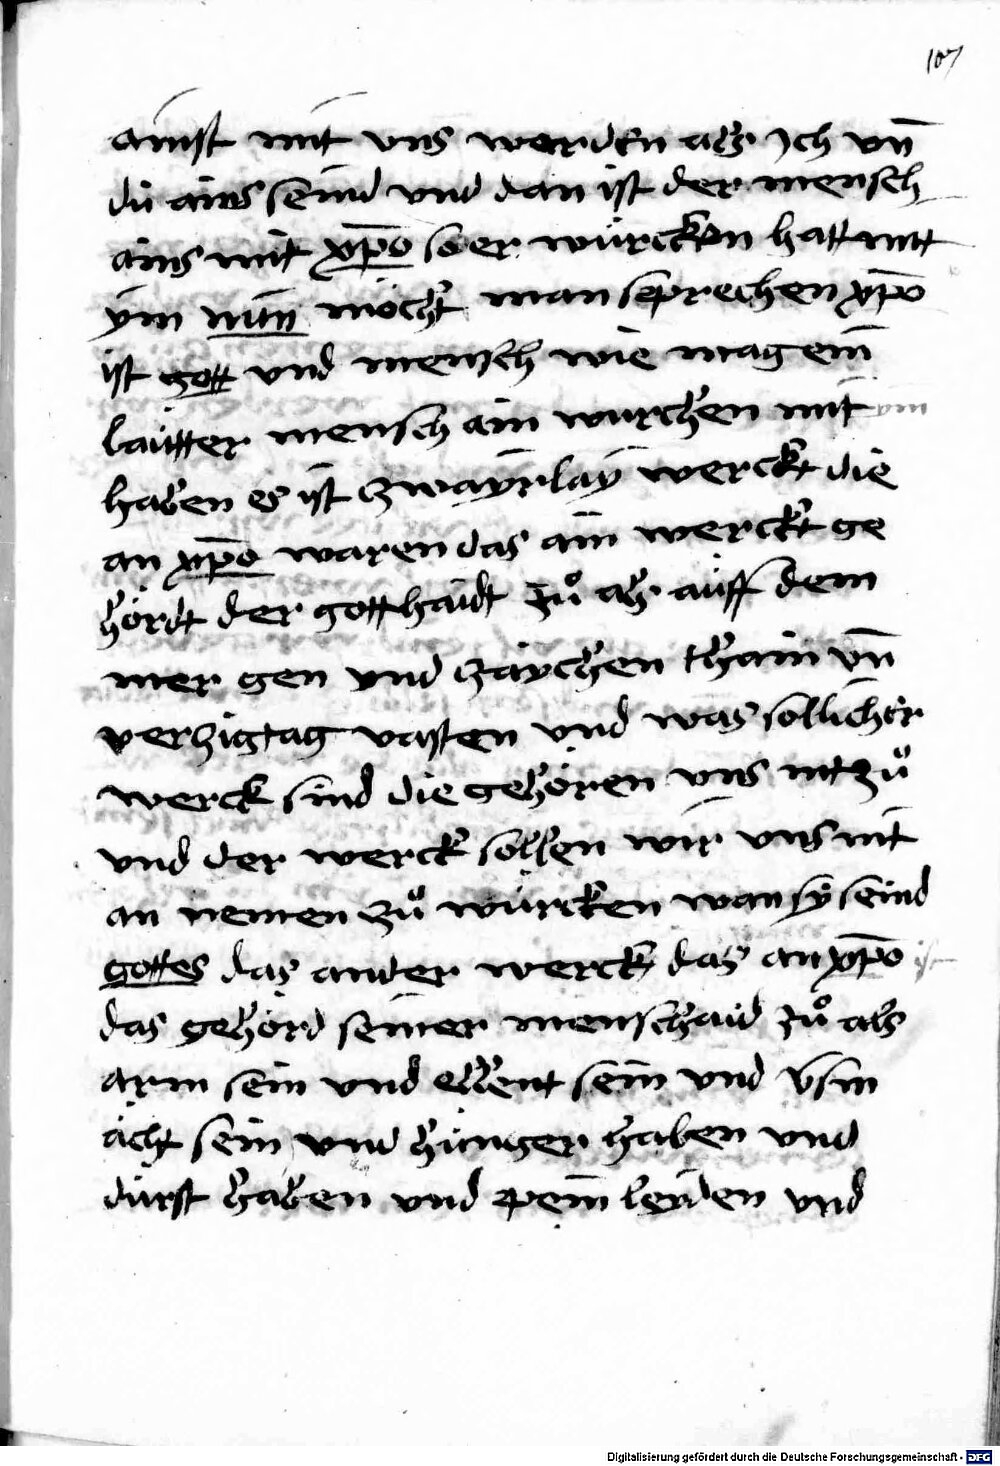 107
ainst mit vns werden als Jch vn̄
du ains seind vnd dan ist der mensch
ains mit xp̄o so er würcken hatt mitt
ÿm nūn möcht man sprechen xp̄o
ist gott vnd mensch wie mag ein
lautter mensch ain wurchen mit ÿm
haben es ist zwaÿrlaÿ werckt die
an xp̄o waren das ain werckt ge
hördt der gotthaidt zuͦ als auff dem
mer gen vnd zaÿchen thain vn̄
verzigtag vasten vnd was sollicher
werck sind die gehören vns nit zuͦ
vnd der werck sollen wir vns nit
an nemen zuͦ würcken wan sÿ seind
gottes das ander werck das an xp̄o ist
das gehörd seiner menschaid zuͦ als
arm sein vnd ellent sein vnd vsm
acht sein vnd hunger haben vnd
durst haben vnd pein leiden vnd
Digitalisierung gefördert durch die Deutsche Forschungsgemeinschaft - DFG